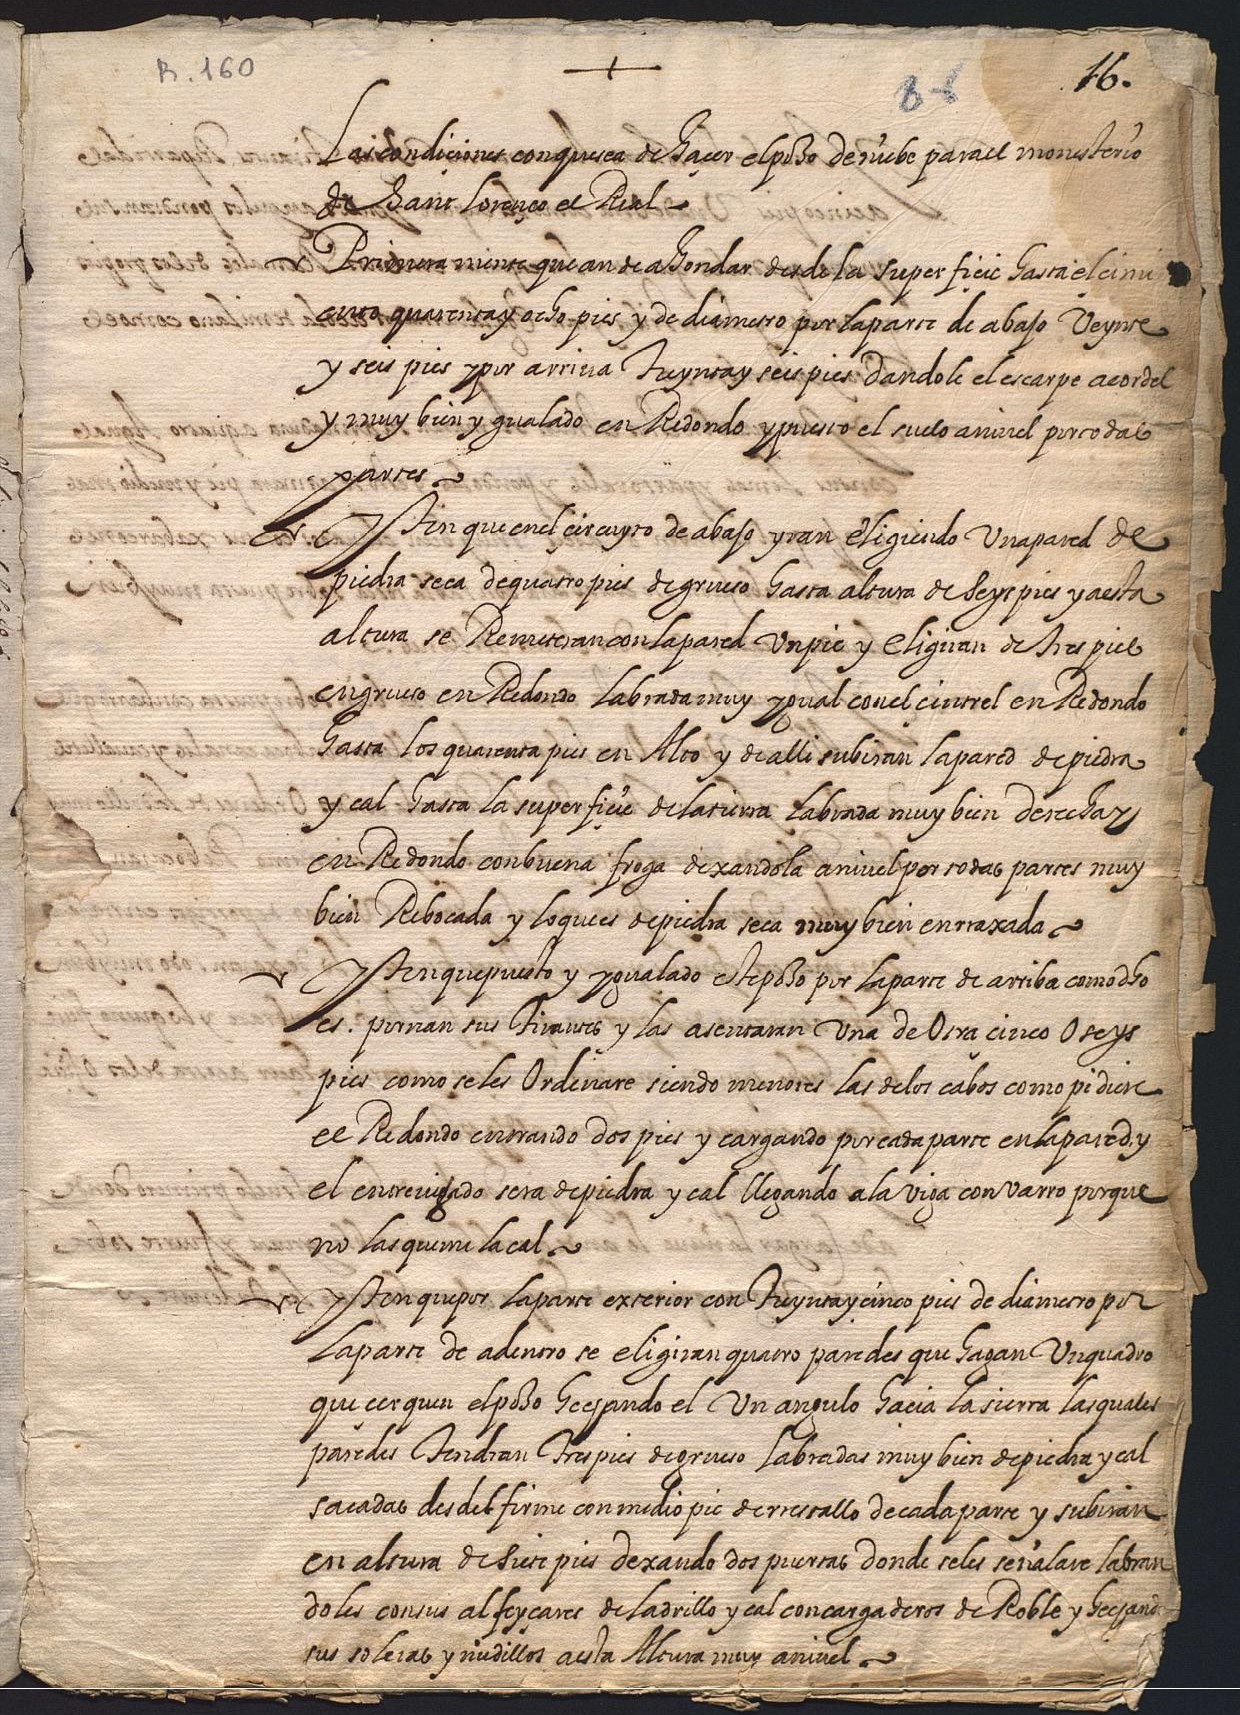 R. 160
16.
Las condiciones con que sea de haçer el pozo de niebe para el monesterio
de Sanc Lorenço el Real
Primeramente que an de ahondar desde la superfiçie hasta el cimi
ento quarenta y ocho pies y de diametro por la parte de abajo Veynte
y seis pies y por arriva treynta y seis pies dandole el escarpe a cordel
y muy bien ygualado en Redondo y puesto el suelo a nivel por todas
partes
Yten que en el circuyto de abajo yran eligiendo Una pared de
piedra seca de quatro pies de grueso hasta altura de seys pies y a esta
altura se Remeteran con la pared Un pie y eligiran de tres pies
en grueso en Redondo labrada muy ygual con el cintrel en Redondo
hasta los quarenta pies en Alto y de alli subiran la pared de piedra
y cal hasta la superfiçie de la tierra labrada muy bien derecha y
en Redondo con buena froga dexandola a nivel por todas partes muy
bien Rebocada y lo que es de piedra seca muy bien enrraxada
Yten que puesto y ygualado este pozo por la parte de arriba como dho
es. pornan sus tirantes y las asentaran Una de Otra cinco O seys
pies como se les Ordenare siendo menores las de los cabos como pidiere
el Redondo entrando dos pies y cargando por cada parte en la pared y
el entrevigado sera de piedra y cal llegando a la viga con varro porque
no las queme la cal
Yten que por la parte exterior con treynta y cinco pies de diametro por
la parte de adentro se eligiran quatro paredes que hagan Un quadro
que çerquen el pozo hechando el Un angulo hacia la sierra las quales
paredes tendran tres pies de grueso labradas muy bien de piedra y cal
sacadas desdel firme con medio pie de rrestallo de cada parte y subiran
en altura de siete pies dexando dos puertas donde se les señalare labran
doles con sus alfeyçares de ladrillo y cal con cargaderos de Roble y hechand
sus soleras y nudillos a esta Altura muy a nivel